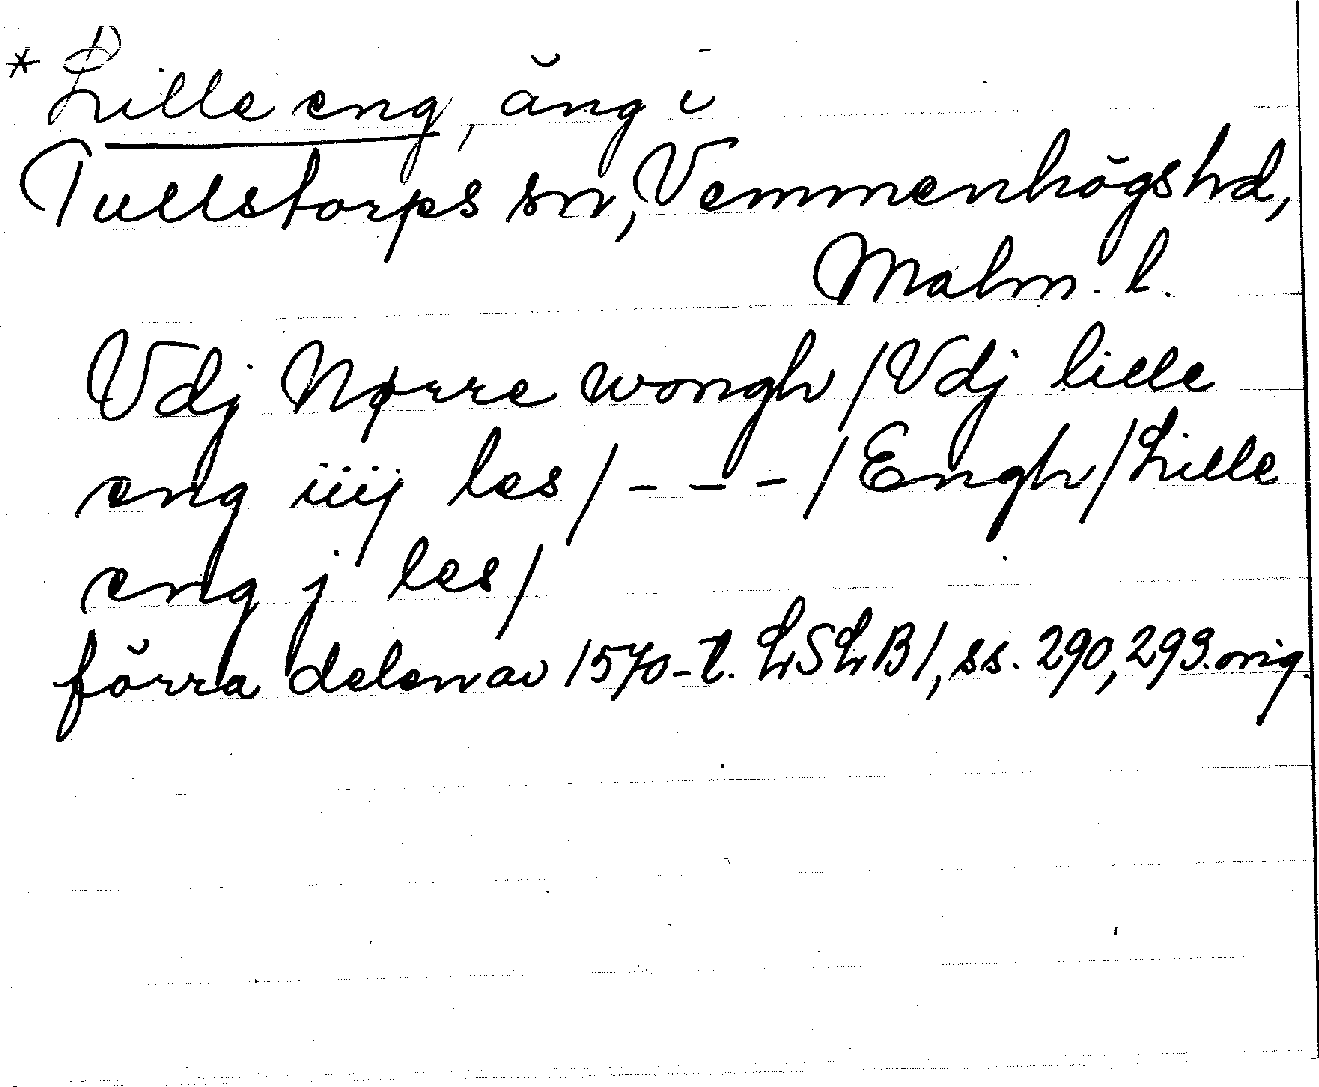 * Lille eng, äng i
Tullstorps sn, Vemmenhögs hd,
Malm. l.
Vdj Nørre wongh / Vdj lille
eng iiij les / - - - / Engh / Lille
eng j les /
förra delen av 1570-t. LSLB1, ss. 290, 293. orig.